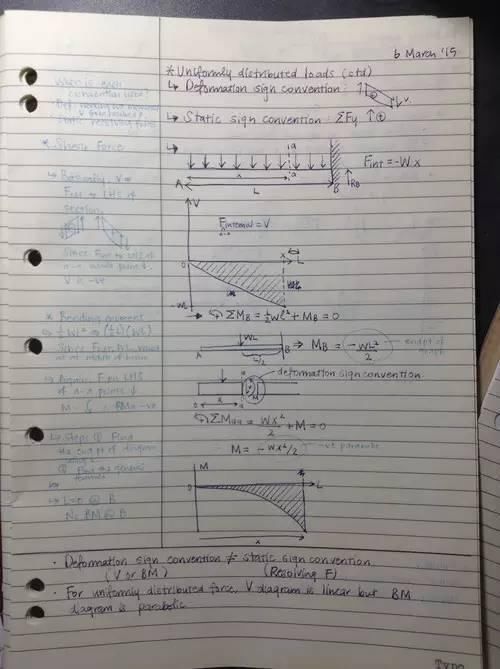 6 March '15
* Uniformly distributed loads (ctd)
↳ Deformation sign convention:
V
↳ Static sign convention: ΣFy ↑⊕
a
x
a
A
L
B
RB
Fint = -Wx
V
Finternal = V
a-a
O
x
L
-WL
ΣMB = ½WL² + MB = 0
WL
A
B
L/2
⇒ MB = -WL²/2
endpt of graph
deformation sign convention
x
a
M
ΣMaa = Wx²/2 + M = 0
M = -Wx²/2
-ve parabola
M
O
L
x
When is each convention used?
Static: resolving force
* Shear Force
↳ Basically, V =
Fint to LHS of
section
Since Fint to LHS of
a-a
V is -ve
* Bending moment
↳ ½WL² → (½L)(WL)
at middle of beam
↳ Again, F on LHS
of a-a points ↓
↳ Steps ① Find
the endpt of diagram
② Find the general
formula
↳ L=0 @ B
· Deformation sign convention ≠ static sign convention
(V or BM)
(Resolving F)
· For uniformly distributed force, V diagram is linear but BM
diagram is parabolic
Typo